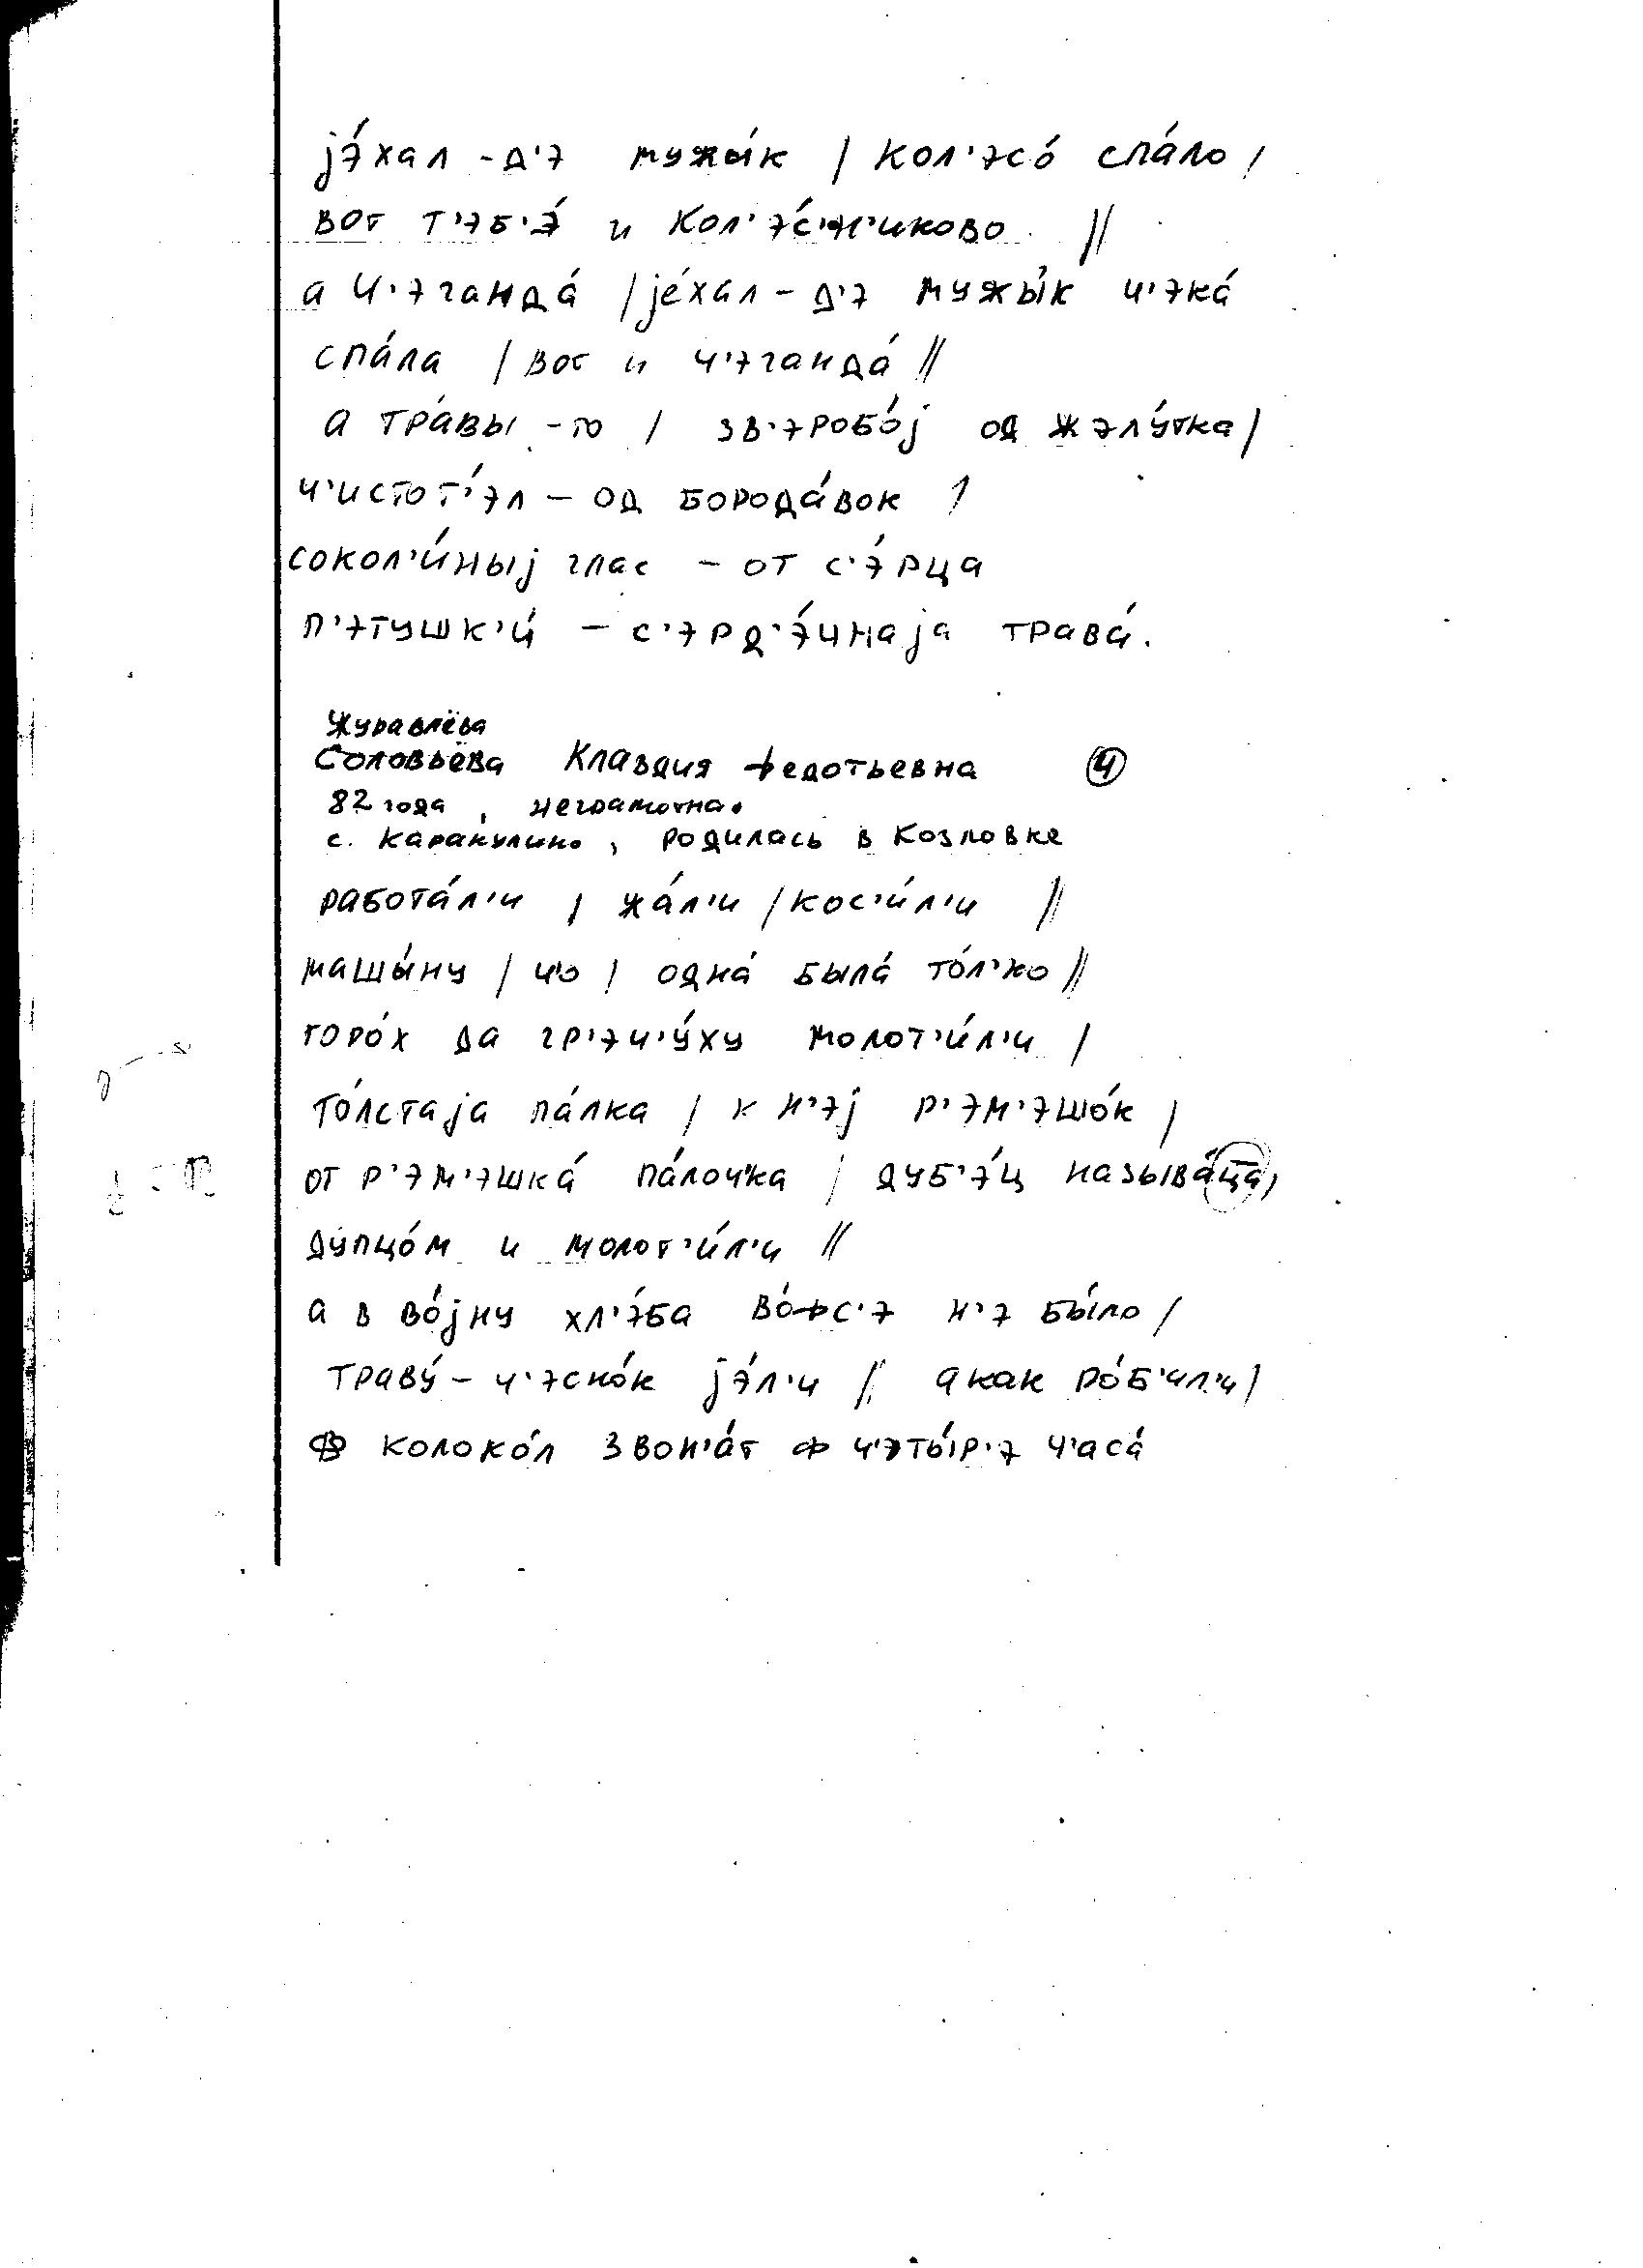 jэ́хал -д'э мужы́к / кол'эсо́ спа́ло /
вот т'эб'э́ и Кол'э́с'н'иково //
а Ч'эганда́ / jе́хал - д'э мужы́к ч'эка́
спа́ла / вот и ч'эганда́ //
а тра́вы -то / зв'эробо́j од жэлу́тка /
ч'истот'э́л - од борода́вок /
сокол'и́ныj глас - от с'э́рца
п'этушк'и́ - с'эрд'э́чнаjа трава́.
Журавлёва
Соловьёва Клавдия Федотьевна ④
82 года, неграмотна.
с. Каракулино, родилась в Козловке
работа́л'и / жа́л'и / кос'и́л'и //
машы́ну / ч'о / одна́ была́ то́л'ко //
горо́х да гр'эч'у́ху молот'и́л'и /
то́лстаjа па́лка / к н'эj р'эм'эшо́к /
от р'эм'эшка́ па́лоч'ка / дуб'э́ц называ́ца /
дупцо́м и молот'и́л'и //
а в во́jну хл'э́ба во́фс'э н'э бы́ло /
траву́ - ч'эсно́к jэ́л'и // а как ро́б'ил'и /
ф колоко́л звон'а́т ф ч'эты́р'э ч'аса́